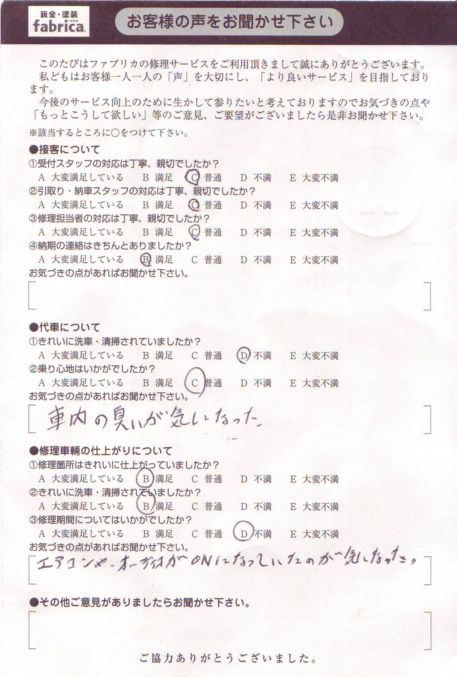 鈑金・塗装
fabrica
お客様の声をお聞かせ下さい
このたびはファブリカの修理サービスをご利用頂きまして誠にありがとうございます。
私どもはお客様一人一人の「声」を大切にし、「より良いサービス」を目指しており
ます。
今後のサービス向上のために生かして参りたいと考えておりますのでお気づきの点や
「もっとこうして欲しい」等のご意見、ご要望がございましたら是非お聞かせ下さい。
※該当するところに○をつけて下さい。
●接客について
①受付スタッフの対応は丁寧、親切でしたか？
A 大変満足している B 満足 C 普通 D 不満 E 大変不満
②引取り・納車スタッフの対応は丁寧、親切でしたか？
A 大変満足している B 満足 C 普通 D 不満 E 大変不満
③修理担当者の対応は丁寧、親切でしたか？
A 大変満足している B 満足 C 普通 D 不満 E 大変不満
④納期の連絡はきちんとありましたか？
A 大変満足している B 満足 C 普通 D 不満 E 大変不満
お気づきの点があればお聞かせ下さい。
●代車について
①きれいに洗車・清掃されていましたか？
A 大変満足している B 満足 C 普通 D 不満 E 大変不満
②乗り心地はいかがでしたか？
A 大変満足している B 満足 C 普通 D 不満 E 大変不満
お気づきの点があればお聞かせ下さい。
車内の臭いが気になった。
●修理車輌の仕上がりについて
①修理箇所はきれいに仕上がっていましたか？
A 大変満足している B 満足 C 普通 D 不満 E 大変不満
②きれいに洗車・清掃されていましたか？
A 大変満足している B 満足 C 普通 D 不満 E 大変不満
③修理期間についてはいかがでしたか？
A 大変満足している B 満足 C 普通 D 不満 E 大変不満
お気づきの点があればお聞かせ下さい。
エアコンや、オーディオがONになっていたのが気になった。
●その他ご意見がありましたらお聞かせ下さい。
ご協力ありがとうございました。